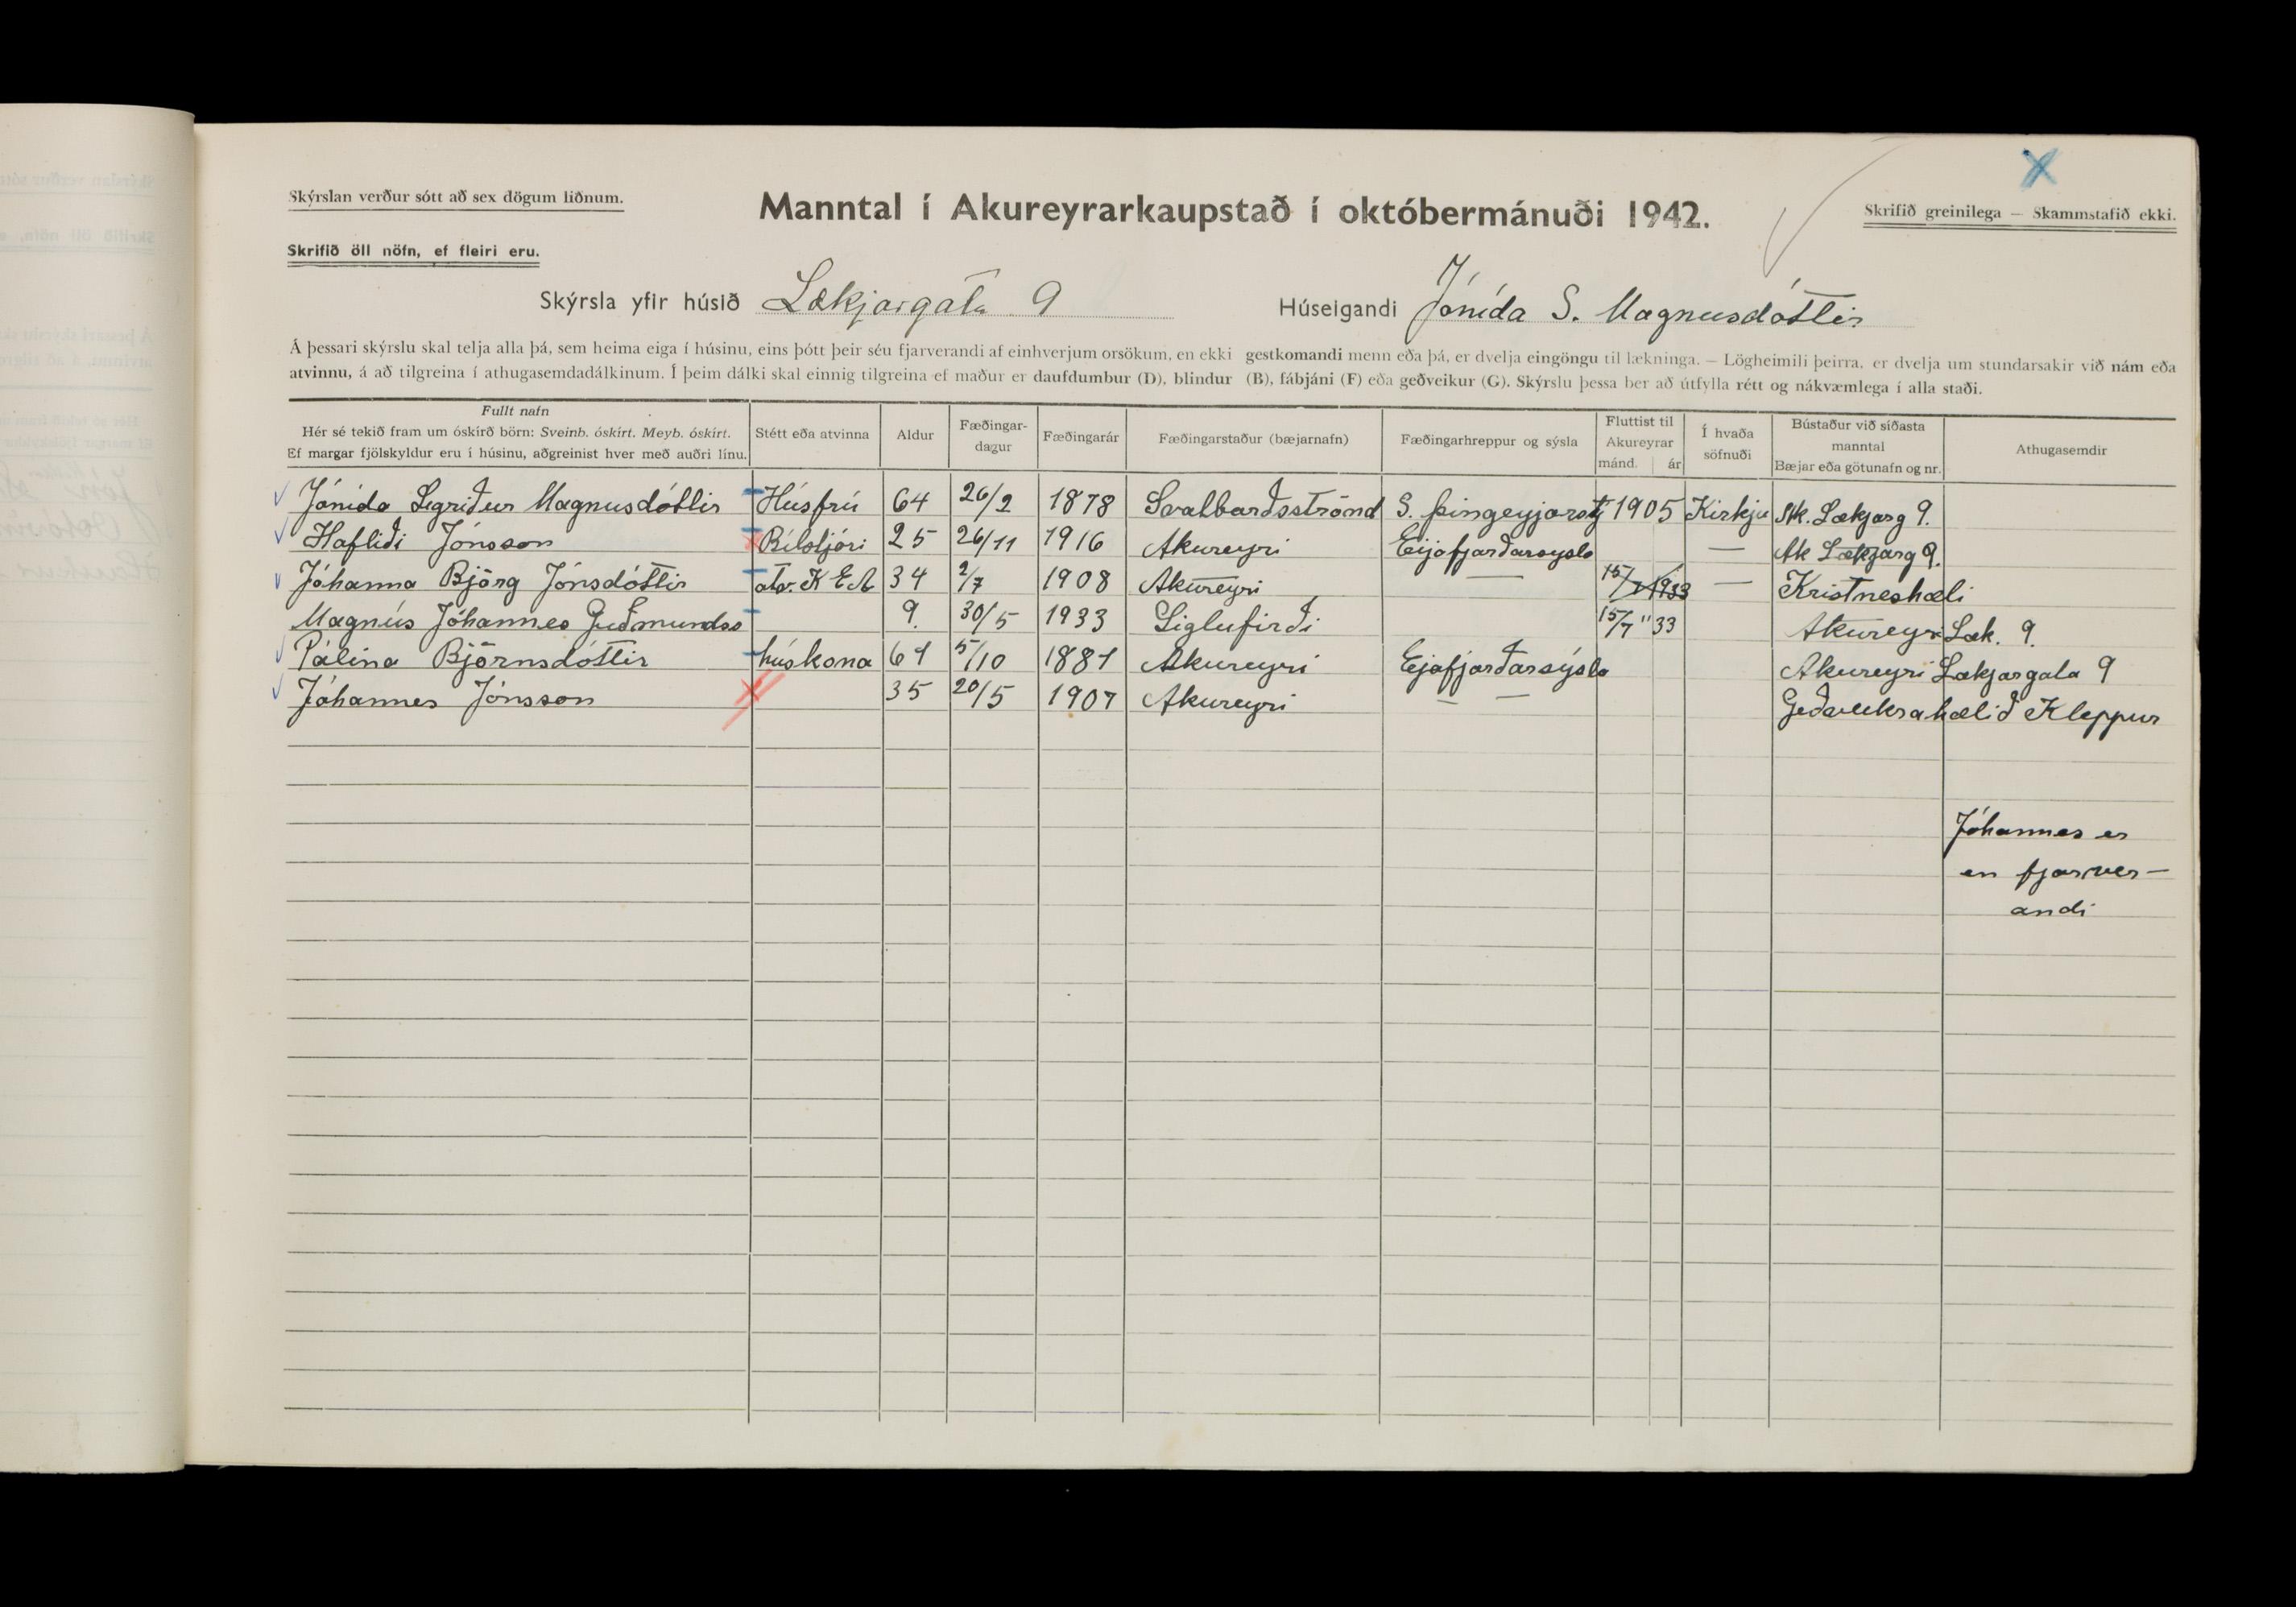 Skýrslan verður sótt að sex dögum liðnum.
Manntal í Akureyrarkaupstað í októbermánuði 1942.
Skrifið greinilega — Skammstafið ekki.
Skrifið öll nöfn, ef fleiri eru.
Skýrsla yfir húsið Lækjargata 9
Húseigandi Jónída S. Magnusdóttir
Á þessari skýrslu skal telja alla þá, sem heima eiga í húsinu, eins þótt þeir séu fjarverandi af einhverjum orsökum, en ekki gestkomandi menn eða þá, er dvelja eingöngu til lækninga. — Lögheimili þeirra, er dvelja um stundarsakir við nám eða
atvinnu, á að tilgreina í athugasemdadálkinum. Í þeim dálki skal einnig tilgreina ef maður er daufdumbur (D), blindur (B), fábjáni (F) eða geðveikur (G). Skýrslu þessa ber að útfylla rétt og nákvæmlega í alla staði.
Fullt nafn
Hér sé tekið fram um óskírð börn: Sveinb. óskírt. Meyb. óskírt.
Ef margar fjölskyldur eru í húsinu, aðgreinist hver með auðri línu.
Stétt eða atvinna
Aldur
Fæðingar-
dagur
Fæðingarár
Fæðingarstaður (bæjarnafn)
Fæðingarhreppur og sýsla
Fluttist til
Akureyrar
mánd. ár
Í hvaða
söfnuði
Bústaður við síðasta
manntal
Bæjar eða götunafn og nr.
Athugasemdir
Jónída Sigriður Magnusdóttir Húsfrú 64 26/2 1878 Svalbarðsströnd S. Þingeyjarsý 1905 Kirkju Ak. Lækjarg 9.
Hafliði Jónsson Bílstjóri 25 26/11 1916 Akureyri Eyjafjarðarsysla — Ak Lækjarg 9.
Jóhanna Björg Jónsdóttir atv. K E A 34 2/7 1908 Akureyri — 15/7 1933 — Kristneshæli
Magnús Jóhannes Guðmundss 9. 30/5 1933 Siglufirði 15/7 " 33 Akureyri Læk. 9.
Pálína Björnsdóttir húskona 61 5/10 1881 Akureyri Eyjafjarðarsýsla Akureyri Lækjargata 9
Jóhannes Jónsson 35 20/5 1907 Akureyri — — Geðveikrahælið Kleppur
Jóhannes er
en fjarver—
andi